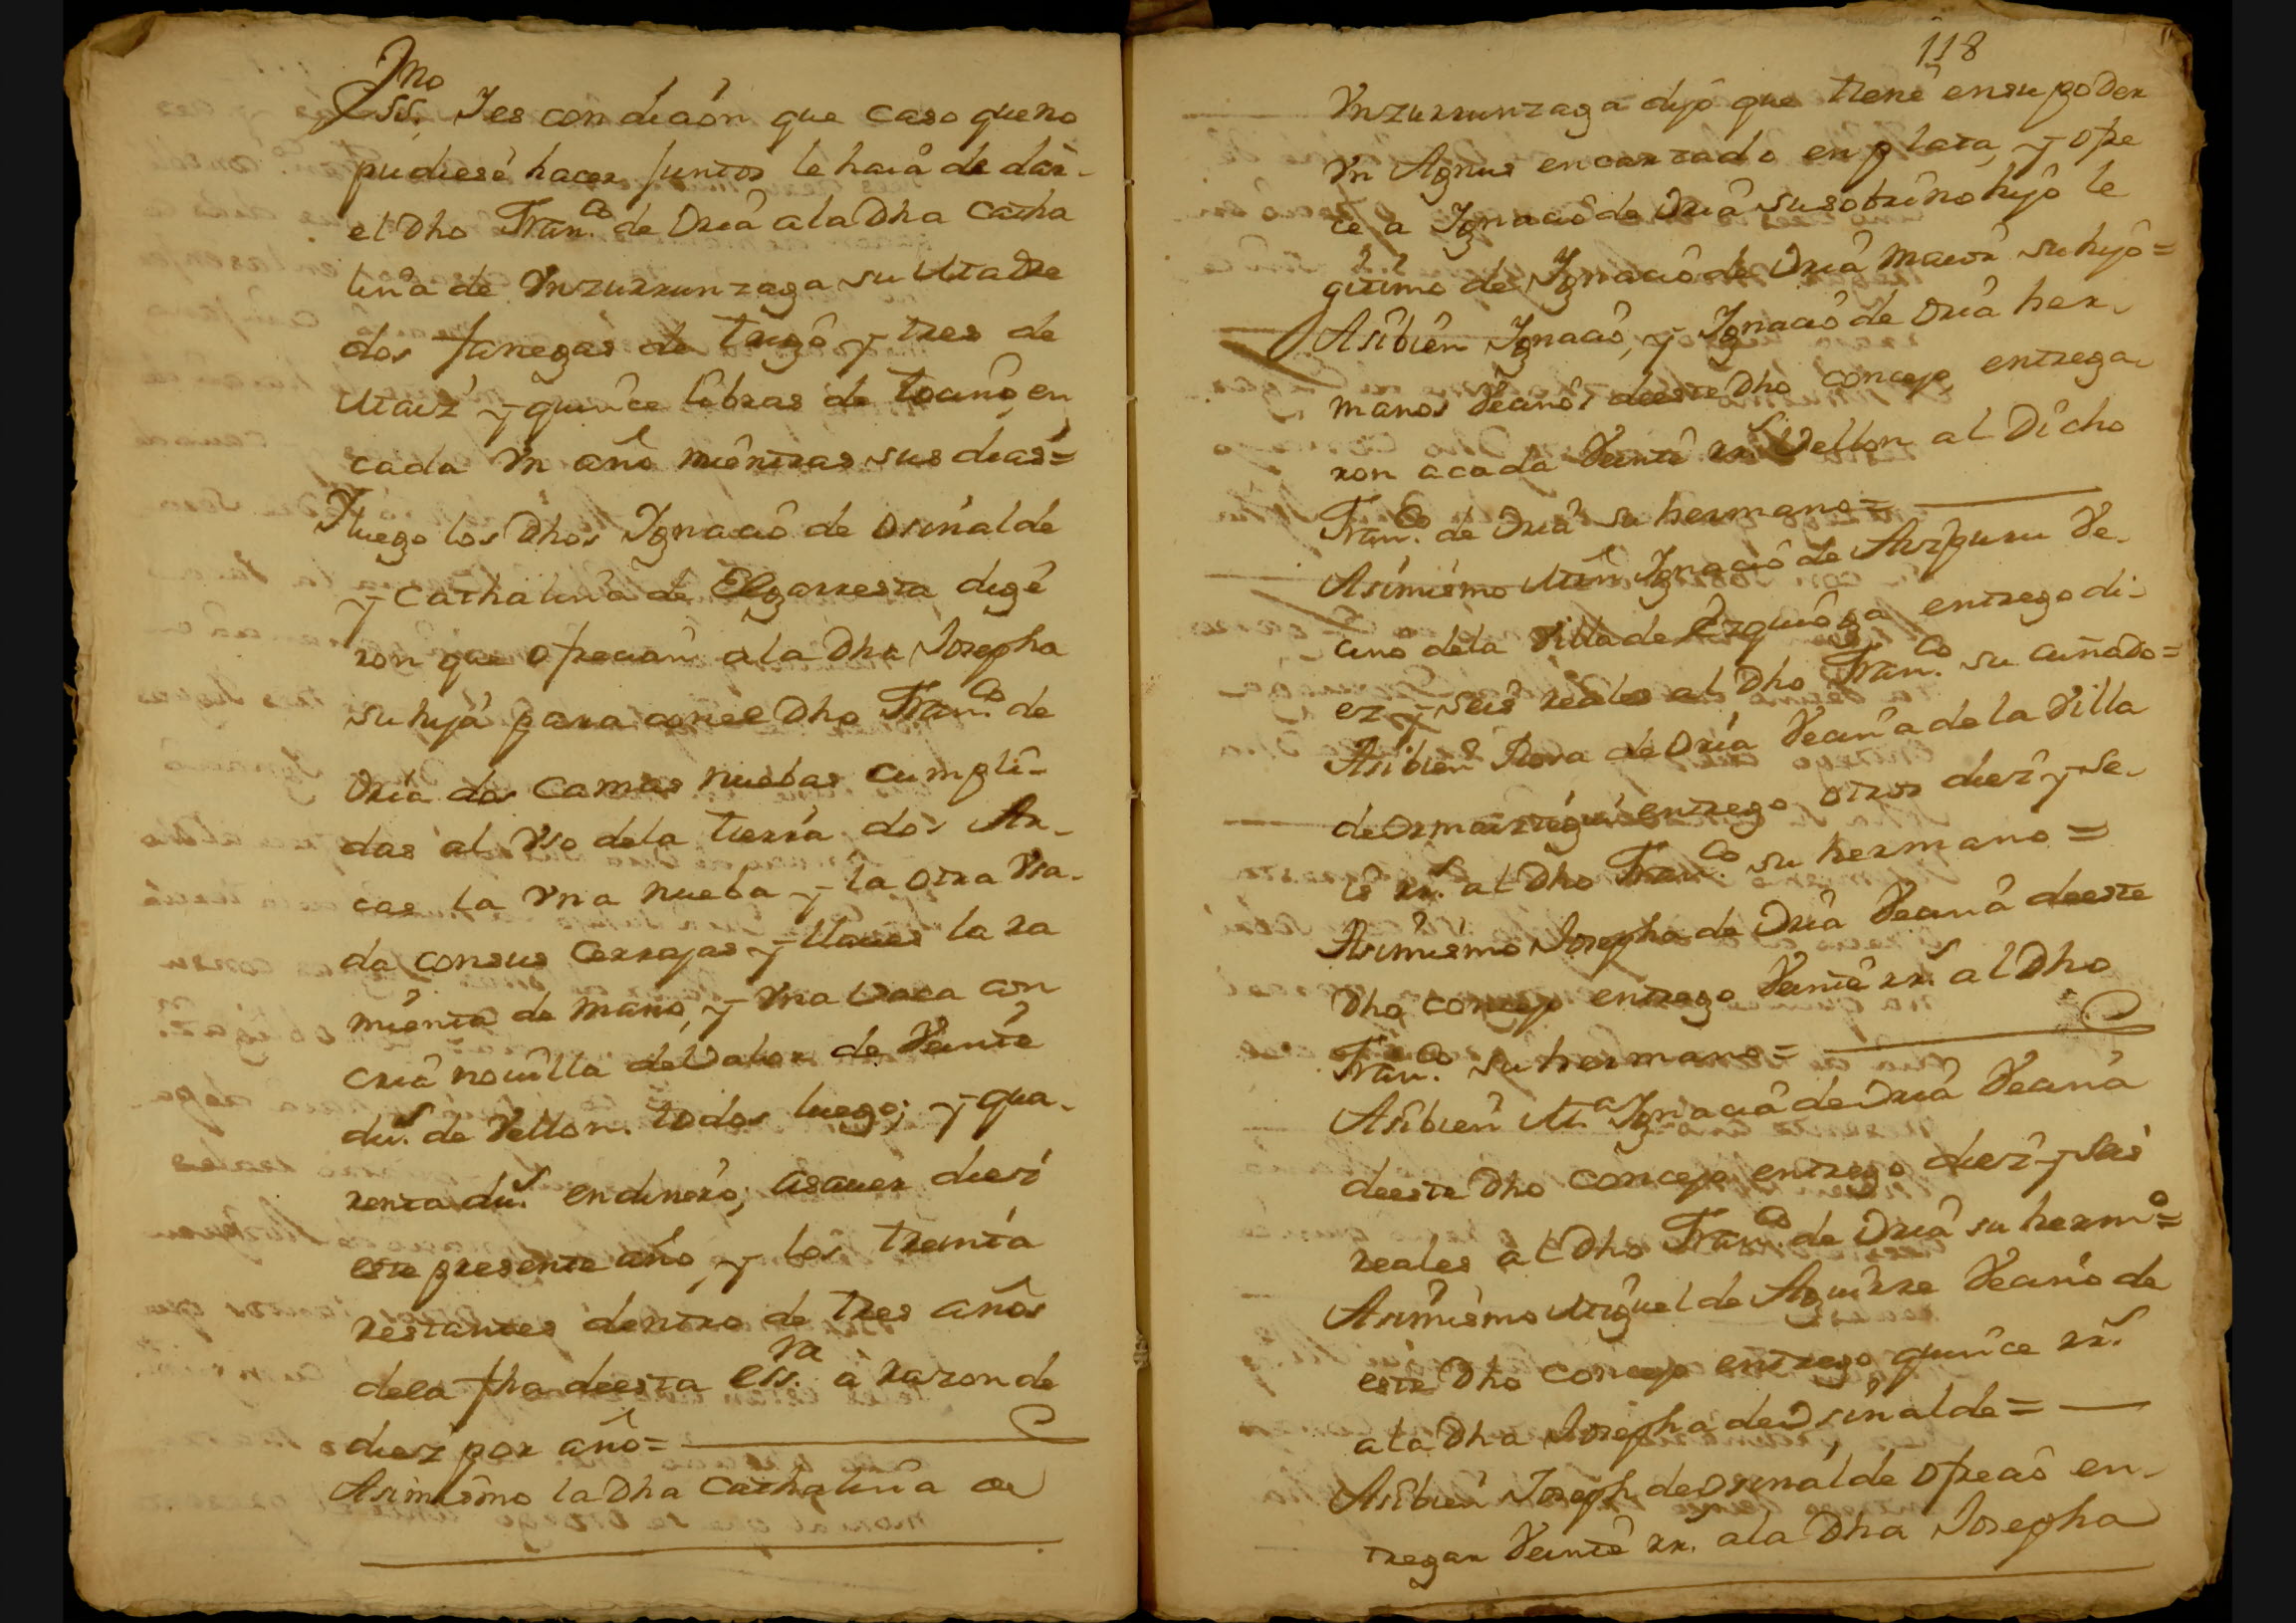 Jmo
ss. Y es condicion que caso que no
pudiese hacer juntos le haia de dar
el Dho Fran.co de Oria a la Dha Catha
lina de Ynzurrunzaga su Madre
dos fanegas de trigo y tres de
Maiz y quince libras de tocino en
cada Vn año mientras sus dias =
Y luego los Dhos Ygnacio de Osinalde
y Cathalina de Elgarresta dige
ron que ofrecian a la Dha Josepha
su hija para con el Dho Fran.co de
Oria dos camas nuebas cumpli-
das al Vso de la tierra dos Ar-
cas la Vna nueba y la otra Vsa-
da con sus Cerrajas y llaues la ra
mienta de mano, y Vna Vaca con
cria nouilla de Valor de Veinte
du.s de Vellon. todos luego; y qua-
renta du.s en dinero; asauer diez
este presente año y los treinta
restantes dentro de tres años
de la fha de esta ess.ra a razon de
diez por año =
Asimismo la Dha Cathalina de
118
Ynzurrunzaga dijo que tiene en su poder
Vn Agnus encartado en plata, y ofre
ce a Ygnacio de Oria su sobrino hijo le
gitimo de Ygnacio de Oria maior su hijo =
Asibien Ygnacio, y Ygnacio de Oria her-
manos Vecinos de este Dho concejo entrega-
ron a cada Veinte rr.s Vellon al Dicho
Fran.co de Oria su hermano =
Asimismo Mrn Ygnacio de Aizpuru Ve-
cino de la Villa de Ezquioga entrego di-
ez y seis reales al Dho Fran.co su cuñado =
Asibien Rosa de Oria Vecina de la Villa
de Ormaiztegui entrego otros diez y se-
is rr.s al Dho Fran.co su hermano =
Asimismo Josepha de Oria Vecina de este
Dho concejo entrego Veinte rr.s al Dho
Fran.co su hermano =
Asibien M.a Ygnacia de Oria Vecina
de este Dho concejo entrego diez y seis
reales al Dho Fran.co de Oria su herm.o =
Asimismo Miguel de Aguirre Vecino de
este Dho concejo entrego quince rr.s
a la Dha Josepha de Osinalde =
Asibien Joseph de Osinalde ofrecio en-
tregar Veinte rr. a la Dha Josepha